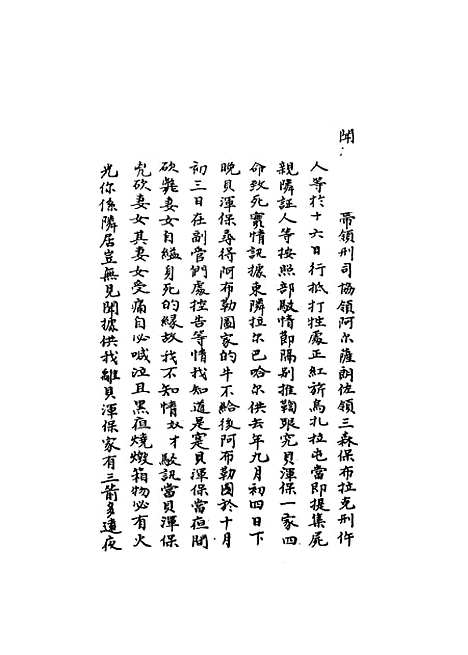 聞:
帶領刑司協領阿尔薩朗佐領三森保布拉克刑仵
人等於十六日行抵打牲處正紅旂烏扎拉屯當即提集屍
親隣証人等按照部駁情節隔别推鞫跟究貝渾保一家四
命致死實情訊據東隣拉尔巴哈尔供去年九月初四日下
晚貝渾保尋得阿布勒圖家的牛不給後阿布勒圖於十月
初三日在副管們處控告等情我知道是寔貝渾保當夜間
砍斃妻女自縊身死的緣故我不知情奴才駁訊當貝渾保
兇砍妻女其妻女受痛自必喊泣且黑夜燒燬箱物必有火
光你係隣居豈無見聞據供我離貝渾保家有三箭多遠夜